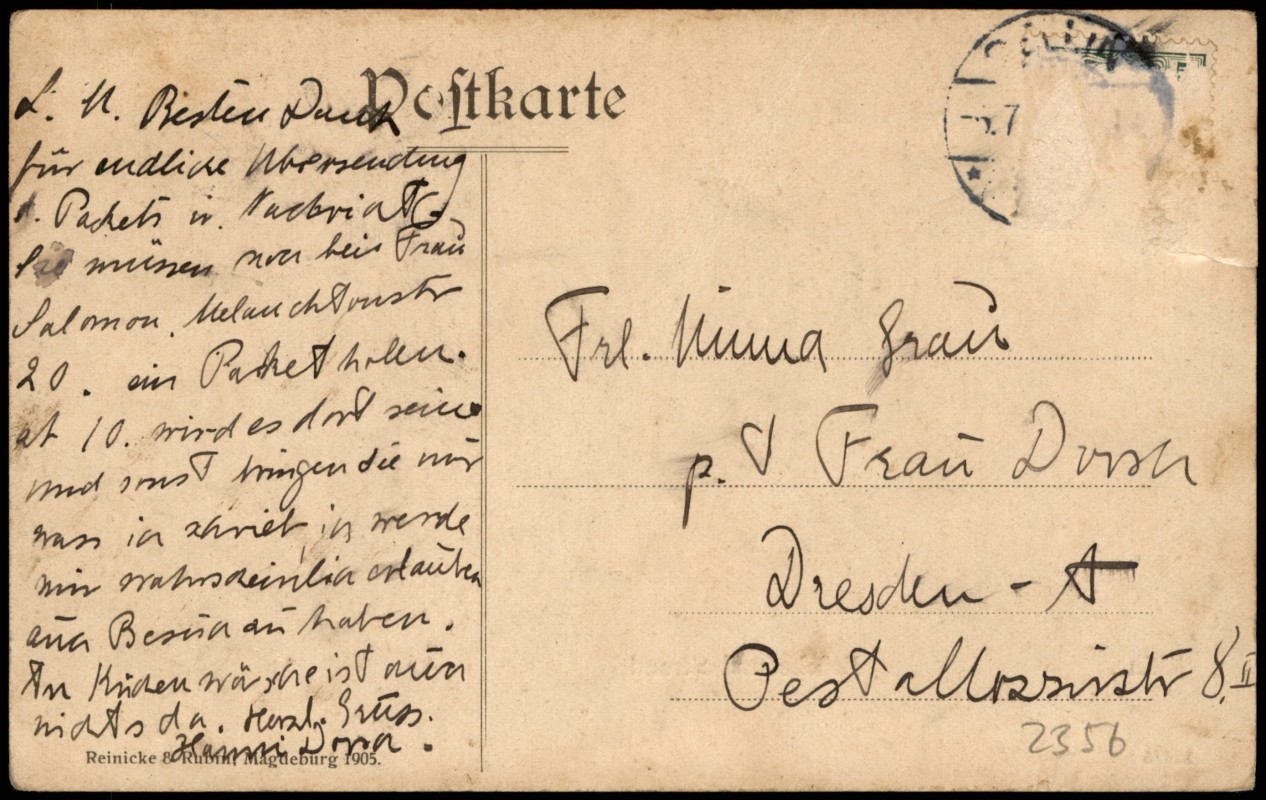 Postkarte
L. M. Besten Dank
für endliche Übersendung
d. Packets u. Nachricht
Sie müssen nun bei Frau
Salomon, Melanchtonstr
20. ein Packet holen.
at 10. wird es dort sein
und sonst bringen Sie mir
was ich schrieb, ich werde
mir wahrscheinlich erlauben
auch Besuch zu haben.
An Küchenwäsche ist auch
nichts da. Herzl. Gruss.
Hanni Dorsch.
Reinicke & Rubin, Magdeburg 1905.
Frl. Minna Grau
p. A Frau Dorsch
Dresden - A
Pestallozzistr 8. II
2356